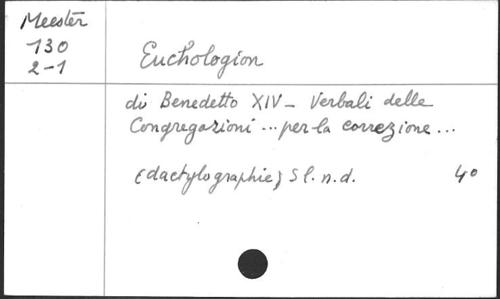 Meester
130
2-1
Euchologion
di Benedetto XIV - Verbali delle
Congregazioni ... per la correzione ...
(dactylographie) S l. n. d.
4º